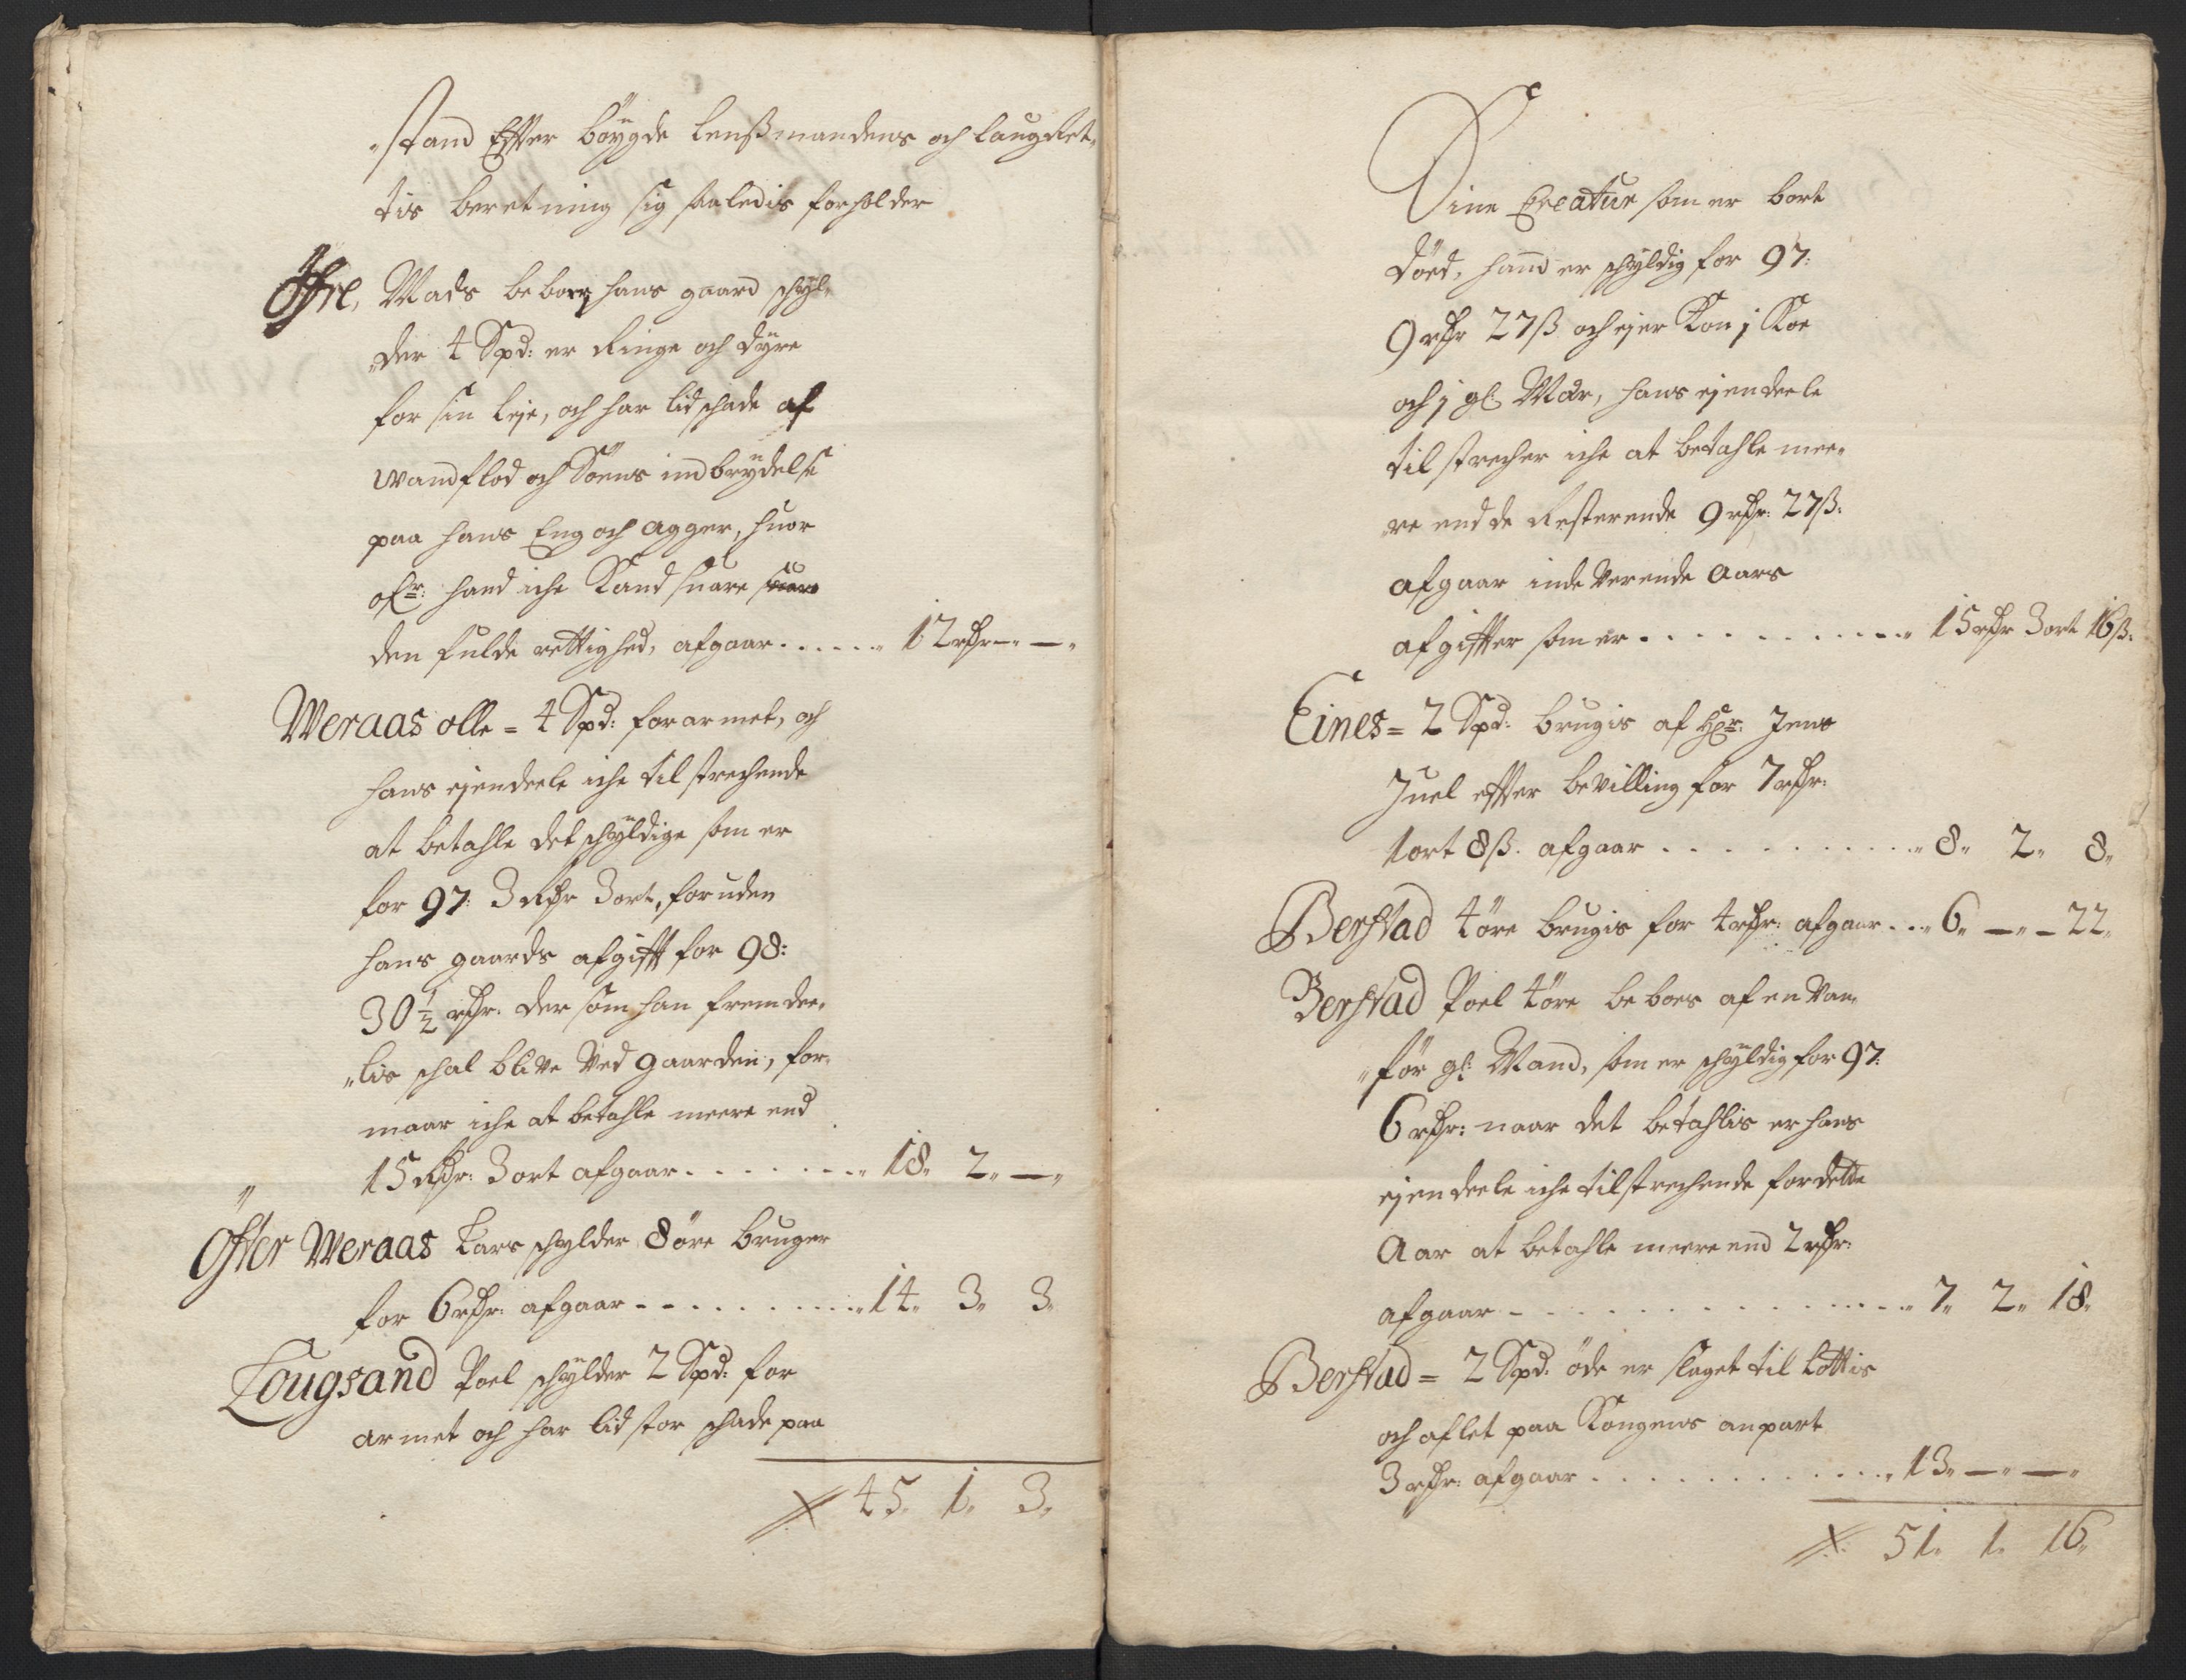 stand Effter böygde Lensßmandens och laugRet„
tis beretning sig saaledis forholder
Öfre, Mads beboer hans gaard schyl„
„der 4 Spd: er Ringe och dyre
for sin leje, och har lid schade af
Wandflod och Söens indbrydelse
paa hans Eng och agger, huor
ofr: hand iche Kand suare
den fulde rettighed, afgaar . . . . . . 12 rdr — —
Weraas olle = 4 Spd: forarmet, och
hans ejendeele iche tilstrechende
at betahle det schyldige som er
for 97: 3 Rdr 3 ort, foruden
hans gaards afgifft for 98:
30 ½ rdr. der som han fremdee„
„lis schal blive Ved gaarden, for„
maar iche at betahle meere end
15 Rdr: 3 ort afgaar . . . . . . . . 18„ 2„ —„
Öffter Weraas Lars schylder 8 öre bruger
for 6 rdr: afgaar . . . . . . . . . 14„ 3„ 3„
Lougsand Poel schylder 2 Spd: for
armet och har lid stor schade paa
45„ 1„ 3„
Sine Creatur som er bort
döed, hand er schyldig for 97:
9 rdr 27 ß och ejer Kon j Koe
och j gl: Mær, hans ejendeele
tilstrecher iche at betahle mee„
re end de Resterende 9 rdr: 27 ß.
afgaar inde Verende aars
afgiffter som er . . . . . . . . . . . 15 rdr 3 ort 16 ß.
Eines = 2 Spd: brugis af Hr: Jens
Juel effter beVilling for 7 rdr:
1 ort 8 ß. afgaar . . . . . . . . . . 8„ 2„ 8„
Berstad 4 öre brugis for 4 rdr: afgaar . . 6„ —„ 22„
Berstad Poel 4 öre beboes af en Van„
„för gl: Mand, som er schyldig for 97:
6 rdr: naar det betahlis er hans
ejendeele iche tilstrechende for dette
Aar at betahle meere end 2 rdr:
afgaar . . . . . . . . . . . . . . . 7„ 2„ 18„
Berstad = 2 Spd: öde er slaget til Lottis
och aflet paa Kongens anpart
3 rdr: afgaar . . . . . . . . . . . 13„ —„ —„
51„ 1„ 16„